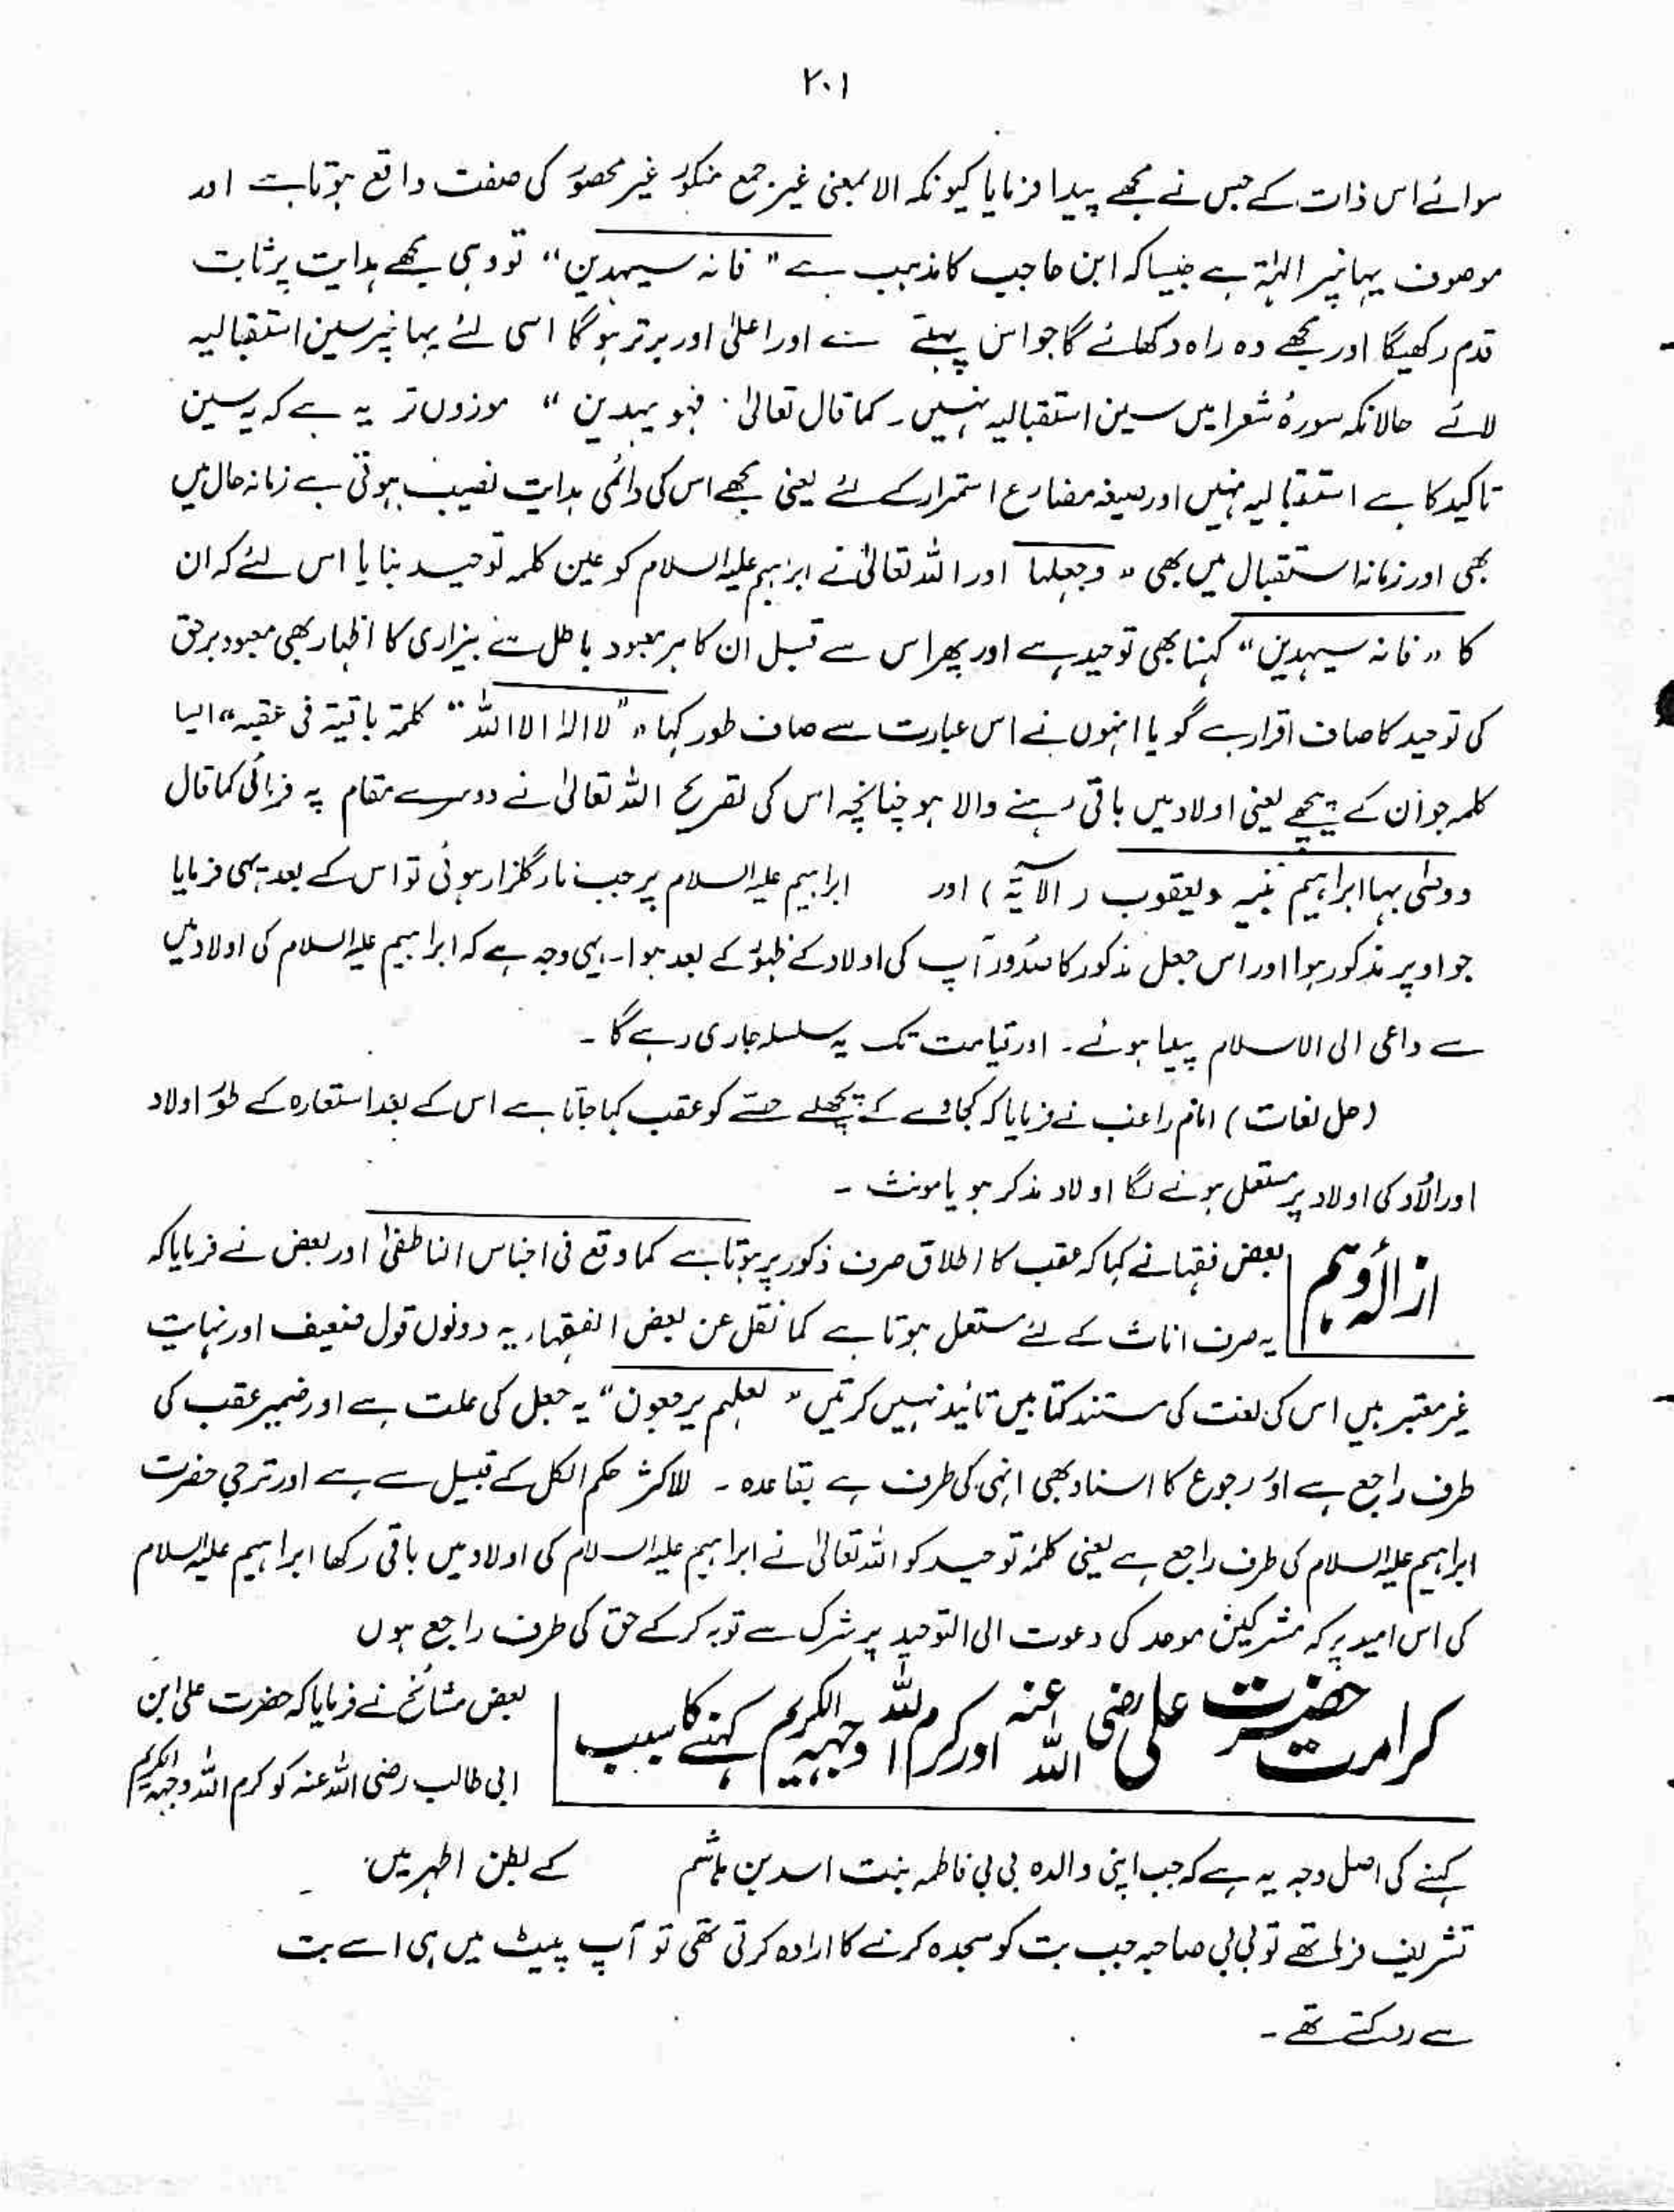 ۲۰۱
سوائے اس ذات کے جس نے مجھے پیدا فرمایا کیونکہ الا بمعنی غیر جمع منکور غیر محصور کی صفت واقع ہوتا ہے اور
موصوف یہانپر الہۃ ہے جیسا کہ ابن حاجب کا مذہب ہے " فانہ سیہدین" تو وہی مجھے ہدایت پر ثابت
قدم رکھیگا اور مجھے وہ راہ دکھائے گا جو اس پہلے سے اور اعلیٰ اور برتر ہو گا اسی لئے یہانپر سین استقبالیہ
لائے حالانکہ سورۂ شعرا میں سین استقبالیہ نہیں۔ کما قال تعالیٰ . فہو یہدین " موزوں تر یہ ہے کہ یہ سین
تاکید کا ہے استقبالیہ نہیں اور صیغہ مضارع استمرار کے لئے یعنی مجھے اس کی دائمی ہدایت نصیب ہوتی ہے زمانہ حال میں
بھی اور زمانہ استقبال میں بھی " وجعلہا اور اللہ تعالیٰ نے ابرہیم علیہ السلام کو عین کلمہ توحید بنایا اس لئے کہ ان
کا " فانہ سیہدین" کہنا بھی توحید ہے اور پھر اس سے قبل ان کا ہر معبود باطل سے بیزاری کا اظہار بھی معبود برحق
کی توحید کا صاف اقرار ہے گویا انہوں نے اس عبارت سے صاف طور کہا " لا الہ الا اللہ " کلمۃ باقیۃ فی عقبہ" ایسا
کلمہ جو ان کے پیچھے یعنی اولاد میں باقی رہنے والا ہو چنانچہ اس کی تصریح اللہ تعالیٰ نے دوسرے مقام پہ فرمائی کما قال
ووصّٰی بہا ابراہیم بنیہ ویعقوب ( الآیۃ ) اور ابراہیم علیہ السلام پر جب نار گلزار ہوئی تو اس کے بعد یہی فرمایا
جو اوپر مذکور ہوا اور اس جعل مذکور کا صدور آپ کی اولاد کے ظہور کے بعد ہوا۔ یہی وجہ ہے کہ ابراہیم علیہ السلام کی اولاد میں
سے داعی الی الاسلام پیدا ہوئے۔ اور قیامت تک یہ سلسلہ جاری رہے گا ۔
(حل لغات ) امام راغب نے فرمایا کہ کجاوے کے پچھلے حصے کو عقب کہا جاتا ہے اس کے بعد استعارہ کے طور اولاد
اور اولاد کی اولاد پر مستعمل ہونے لگا اولاد مذکر ہو یا مونث ۔
ازالۂ وہم
بعض فقہا نے کہا کہ عقب کا اطلاق صرف ذکور پر ہوتا ہے کما وقع فی اجناس الناطفی اور بعض نے فرمایا کہ
یہ صرف اناث کے لئے مستعمل ہوتا ہے کما نقل عن بعض الفقہاء یہ دونوں قول ضعیف اور نہایت
غیر معتبر ہیں اس کی لغت کی مستند کتابیں تائید نہیں کرتیں " لعلہم یرجعون" یہ جعل کی علت ہے اور ضمیر عقب کی
طرف راجع ہے اور رجوع کا اسناد بھی انہی کی طرف ہے بقاعدہ ۔ للاکثر حکم الکل کے قبیل سے ہے اور ترجی حضرت
ابراہیم علیہ السلام کی طرف راجع ہے یعنی کلمۂ توحید کو اللہ تعالیٰ نے ابراہیم علیہ السلام کی اولاد میں باقی رکھا ابراہیم علیہ السلام
کی اس امید پر کہ مشرکین موحد کی دعوت الی التوحید پر شرک سے توبہ کر کے حق کی طرف راجع ہوں
کرامت حضرت علی رضی اللہ عنہ اور کرم اللہ وجہہ الکریم کہنے کا سبب
بعض مشائخ نے فرمایا کہ حضرت علی ابن
ابی طالب رضی اللہ عنہ کو کرم اللہ وجہہ الکریم
کہنے کی اصل وجہ یہ ہے کہ جب اپنی والدہ بی بی فاطمہ بنت اسد بن ہاشم کے بطن اطہر میں
تشریف فرما تھے تو بی بی صاحبہ جب بت کو سجدہ کرنے کا ارادہ کرتی تھی تو آپ پیٹ میں ہی اسے بت
سے روکتے تھے ۔